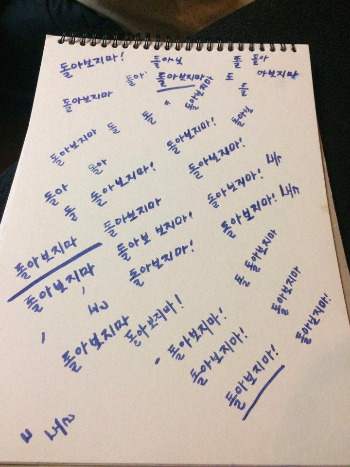 돌아보지마!
돌아보
돌 돌아
돌아
돌아보지마
도
아보지마
돌아보지마
돌
돌아보지마
돌아보지마
돌
돌
돌아보
돌아
돌아보지마!
돌아
돌
돌아보지마!
돌아보지마!
돌아보지마
돌아보지마!
돌아보지마
돌아보 지마!
돌아보지마!
돌 돌아보지마
돌아보지마
돌아보지마
돌아보지마!
돌아보지마
돌아보지마!
돌아보지마!
돌아보지마!
돌아보지마!